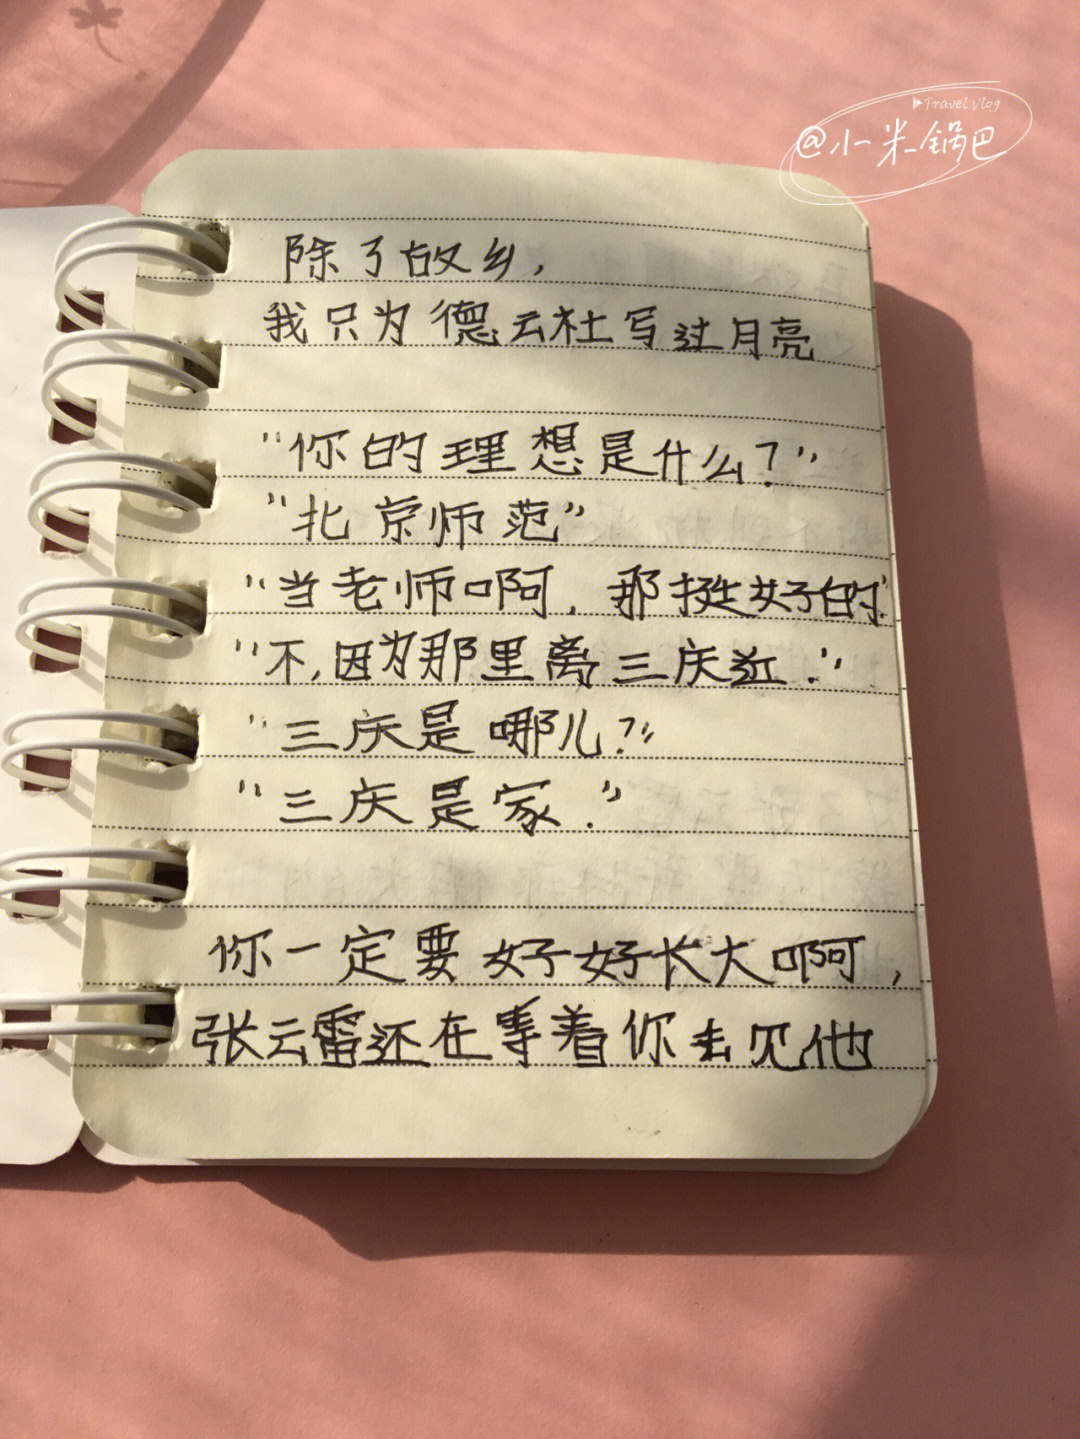 Travel Vlog
@小米锅巴
除了故乡，
我只为德云社写过月亮
“你的理想是什么？”
“北京师范”
“当老师啊，那挺好的.”
“不，因为那里离三庆近.”
“三庆是哪儿？”
“三庆是家.”
你一定要好好长大啊，
张云雷还在等着你去见他